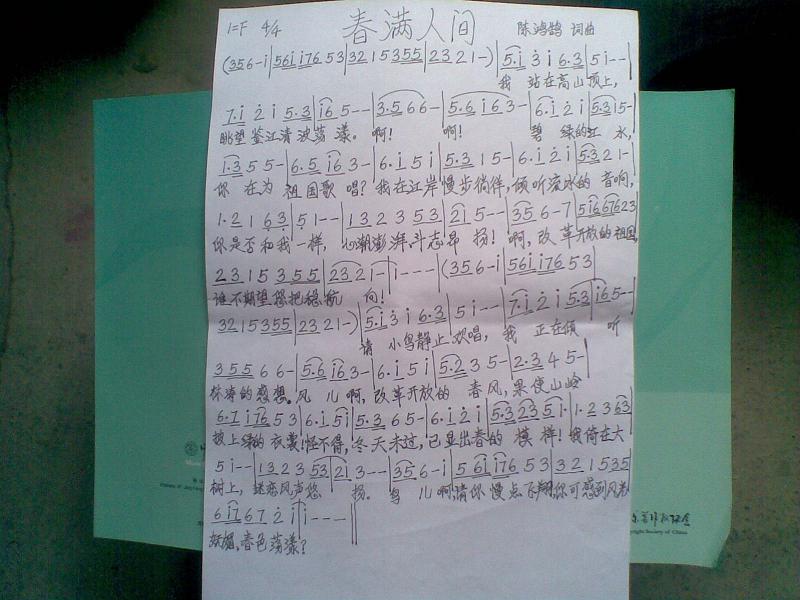 1=F 4/4 春满人间 陈鸿鹄 词曲
(356-i|56ii76 53|3215355|2321-)|5.i 3 i 6.3|5i--|
我 站在高山顶上,
7.i 2 i 5.3|i6 5--|3.5 6 6-|5.6 i6 3-|6.i 2 i|5.3 1 5-|
眺望鉴江清波荡漾。啊! 啊! 碧绿的江水,
1.3 5 5-|6.5 i6 3-|6.i 5 i|5.3 1 5-|6.i 2 i|5.3 2 1-|
你在为祖国歌唱?我在江岸慢步徜徉,倾听流水的音响,
1.2 1 6 3|5 1--|1 3 2 3 5 3|2i 5--|35 6-7|5i667623
你是否和我一样,心潮澎湃,斗志昂扬!啊,改革开放的祖国,
2315355|2321-|i---|(356-i|56ii7653|
谁不期望 把稳航向!
3215355|2321-)|5.i 3 i 6.3|5i--|7.i 2 i 5.3|i65--|
请 小鸟静止欢唱,我 正在倾 听
35566-|5.6i63-|6.i5i|5.235-|2.345-|
林涛的感想。风儿啊,改革开放的春风,果使山岭
6.7i7653|6.i5i|5.365-|6.i2i|5.32351.|1.2363|
披上绿的衣裳!怪不得,冬天未过,已显出春的模样!我倚在大
5i--|13235321|3---|356-i|56ii7653|321535|
树上,迷恋风声悠扬。鸟儿啊,请你慢点飞翔,你可感到风光
6i7672ii---||
妩媚,春色荡漾?